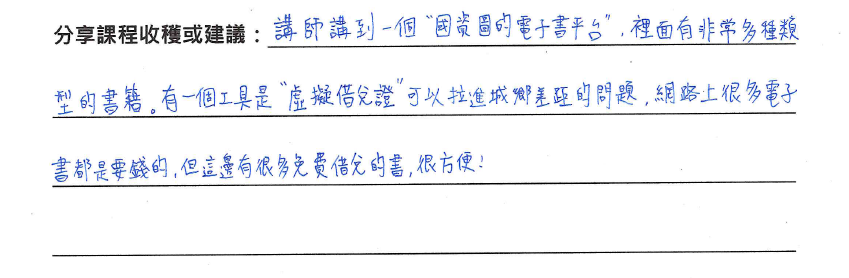 分享課程收穫或建議：講師講到一個“國資圖的電子書平台”，裡面有非常多種類
型的書籍。有一個工具是“虛擬借兌證”可以拉進城鄉差距的問題，網路上很多電子
書都是要錢的，但這邊有很多免費借兌的書，很方便！